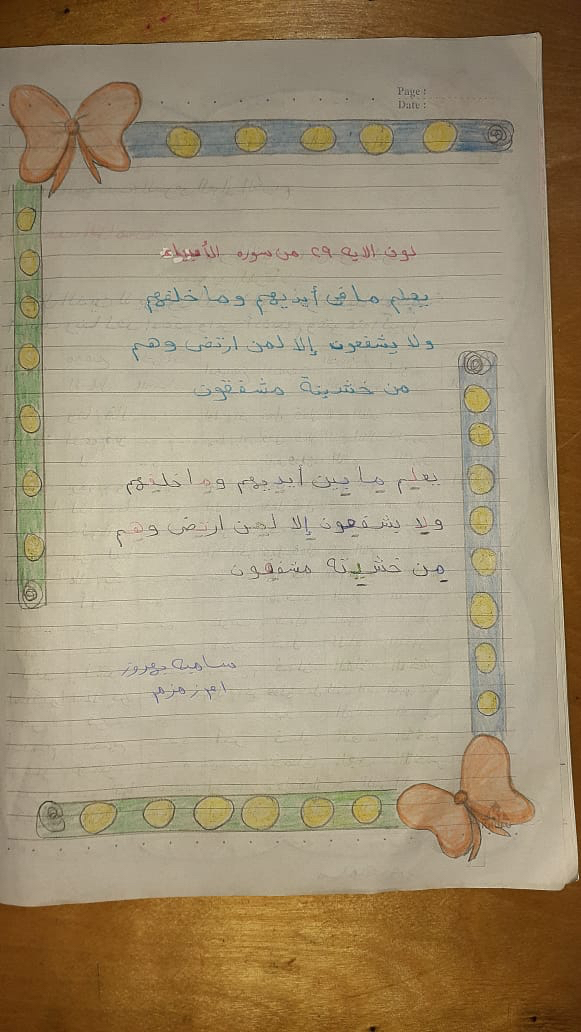 Page :
Date :
لون الايه ٢٩ من سوره الأنبياء
يعلم ما في أيديهم وما خلفهم
ولا يشفعون إلا لمن ارتضى وهم
من خشيتة مشفقون
يعلم ما بين أيديهم وما خلفهم
ولا يشفعون إلا لمن ارتضى وهم
من خشيته مشفقون
ساميه بهروز
ام زمزم